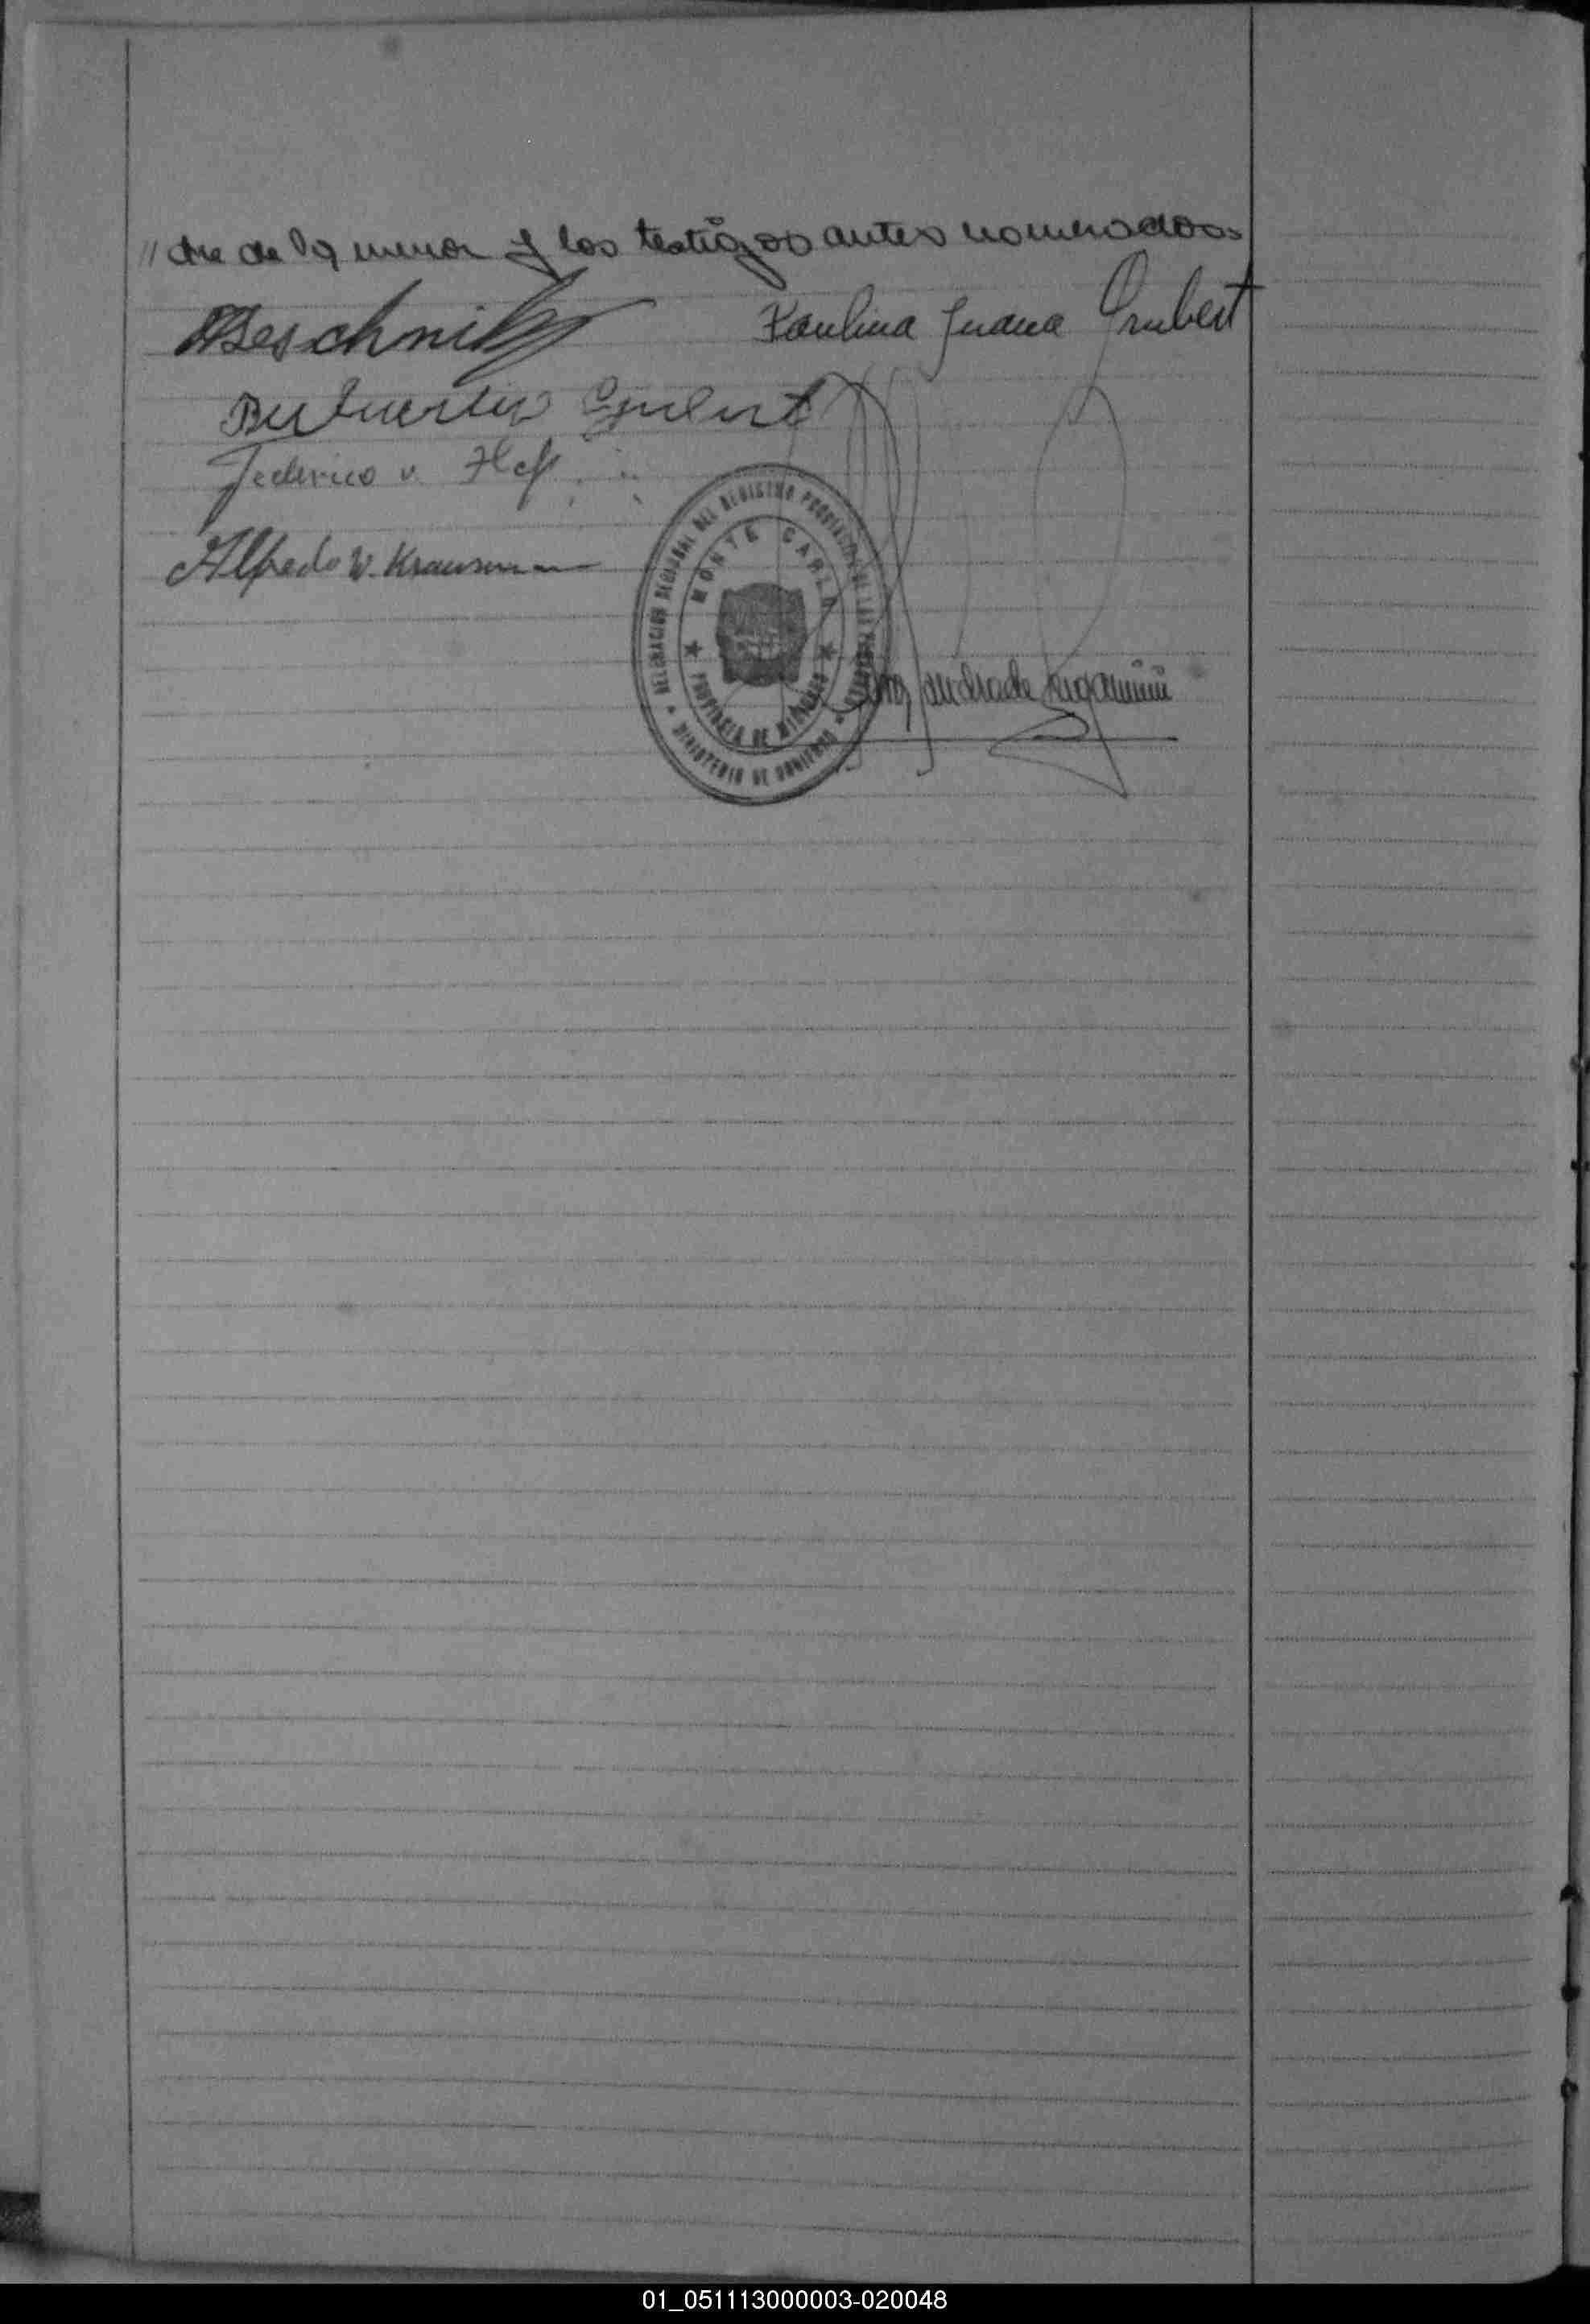 // dre de la menor y los testigos antes nomenados
Beschnik
Paulina Juana Grubert
Grubert
Federico v.
Alfredo W. Krausemann
DELEGACION SECCIONAL DEL REGISTRO PROVINCIAL DE LAS PERSONAS
MONTE CARLO
PROVINCIA DE MISIONES
MINISTERIO DE GOBIERNO
Andrade
01_051113000003-020048